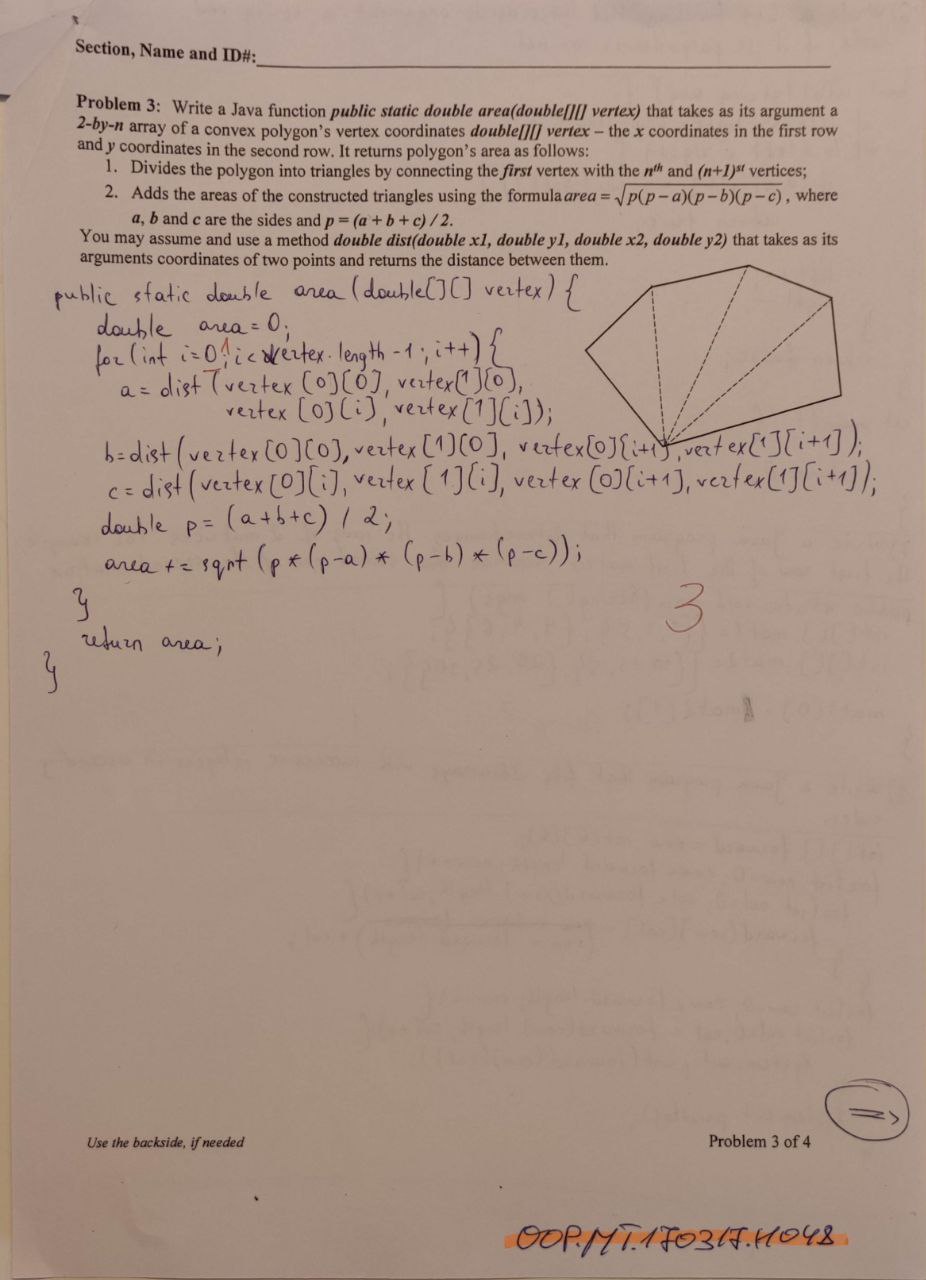 Section, Name and ID#:
Problem 3: Write a Java function public static double area(double[][] vertex) that takes as its argument a
2-by-n array of a convex polygon's vertex coordinates double[][] vertex – the x coordinates in the first row
and y coordinates in the second row. It returns polygon's area as follows:
1. Divides the polygon into triangles by connecting the first vertex with the nth and (n+1)st vertices;
2. Adds the areas of the constructed triangles using the formula area = √p(p – a)(p – b)(p – c) , where
a, b and c are the sides and p = (a + b + c) / 2.
You may assume and use a method double dist(double x1, double y1, double x2, double y2) that takes as its
arguments coordinates of two points and returns the distance between them.
public static double area (double[][] vertex) {
double area = 0;
for (int i=0; i< vertex.length -1; i++) {
1
a = dist (vertex [0][0], vertex[1][0],
vertex [0][i], vertex[1][i]);
b=dist (vertex [0][0], vertex [1][0], vertex[0][i+1], vertex[1][i+1]);
c = dist (vertex [0][i], vertex [1][i], vertex [0][i+1], vertex[1][i+1]);
double p = (a+b+c) / 2;
area += sqrt (p*(p-a) * (p-b) * (p-c));
}
3
return area;
}
Use the backside, if needed
Problem 3 of 4
OOP.MT.170317.H048